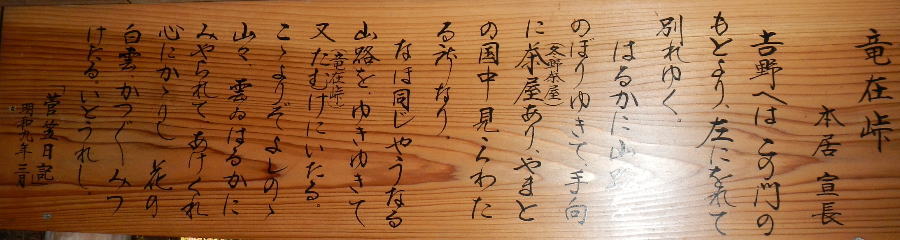 竜在峠
本居宣長
吉野へは この門の
もとより、左にをれて
別れゆく。
はるかに山路
のぼりゆきて、手向
(冬野茶屋)
に茶屋あり、やまと
の国中見えわた
る所なり、
なほ同じやうなる
山路を、ゆきゆきて
(竜在峠)
又たむけにいたる。
こゝよりぞよしのゝ
山々 雲ゐはるかに
みやられて あけくれ
心にかゝりし 花の
白雲かつ〴〵みつ
けたる、いとうれし。
「菅笠日記」
明和九年三月